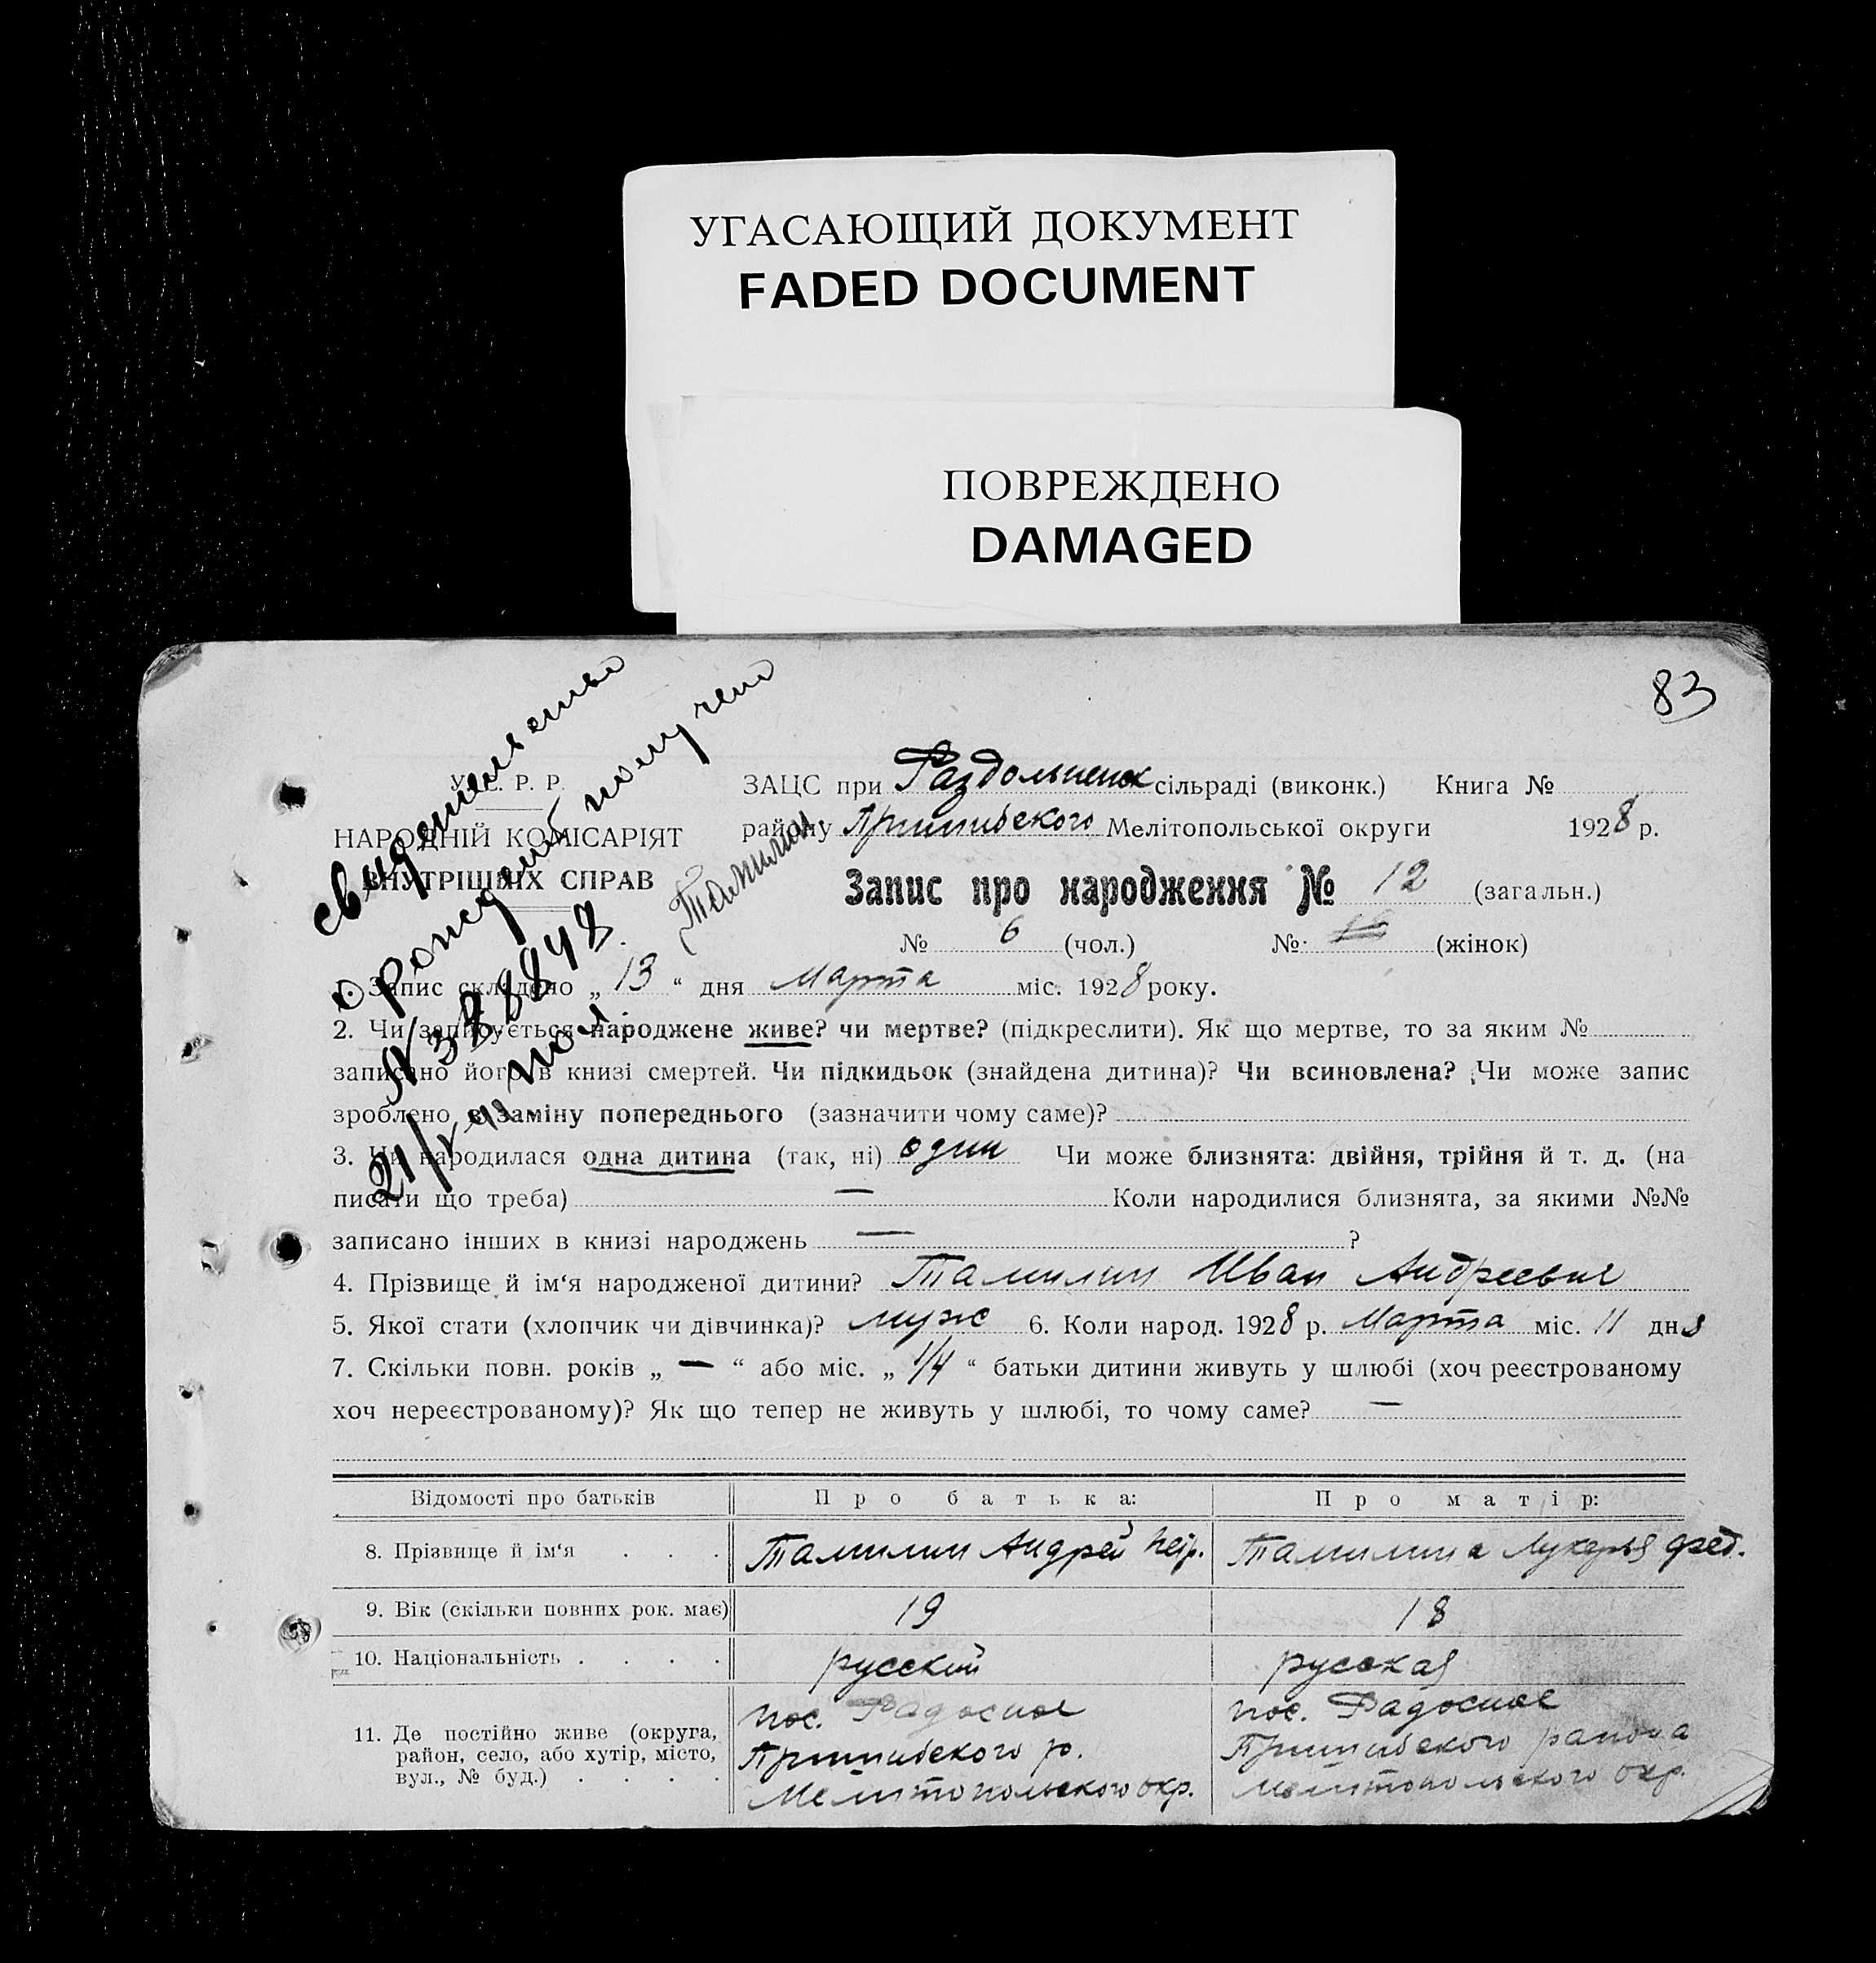 УГАСАЮЩИЙ ДОКУМЕНТ
FADED DOCUMENT
ПОВРЕЖДЕНО
DAMAGED
83
свидетельство
о рождении получено
(Тамилин
21/V
У. С. Р. Р.
НАРОДНІЙ КОМІСАРІЯТ
ВНУТРІШНІХ СПРАВ
ЗАЦС при Раздольненск сільраді (виконк.) Книга №
району Пришибского Мелітопольської округи 1928 р.
Запис про народження № 12 (загальн.)
№ 6 (чол.) № (жінок)
1. Запис складено „ 13 “ дня Марта міс. 1928 року.
2. Чи записується народжене живе? чи мертве? (підкреслити). Як що мертве, то за яким №
записано його в книзі смертей. Чи підкидьок (знайдена дитина)? Чи всиновлена? Чи може запис
зроблено в заміну попереднього (зазначити чому саме)?
3. Чи народилася одна дитина (так, ні) один Чи може близнята: двійня, трійня й т. д. (на
писати що треба) — Коли народилися близнята, за якими №№
записано інших в книзі народжень — ?
4. Прізвище й ім‘я народженої дитини? Тамилин Иван Андреевич
5. Якої стати (хлопчик чи дівчинка)? муж 6. Коли народ. 1928 р. Марта міс. 11 дня
7. Скільки повн. років „ — “ або міс. „ 1/4 “ батьки дитини живуть у шлюбі (хоч реєстрованому
хоч нереєстрованому)? Як що тепер не живуть у шлюбі, то чому саме? —
Відомості про батьків Про батька: Про матір:
8. Прізвище й ім‘я . . . Тамилин Андрей Петр. Тамилина Лукерья Фед.
9. Вік (скільки повних рок. має) 19 18
10. Національність . . . . русский русская
11. Де постійно живе (округа, район, село, або хутір, місто, вул., № буд.) . . . .
пос. Радосное
Пришибского р.
Мелитопольского окр.
пос. Радосное
Пришибского района
Мелитопольского окр.